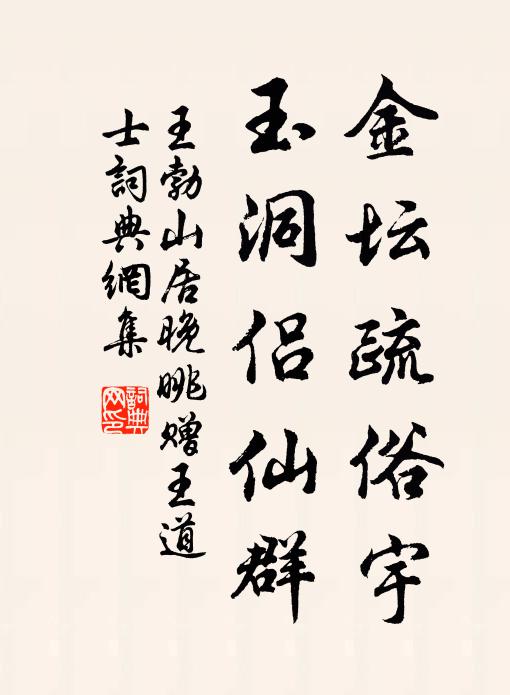 金坛疏俗宇
玉洞侣仙群
王勃山居晚眺赠王道
士詞典網集
詞典
网印